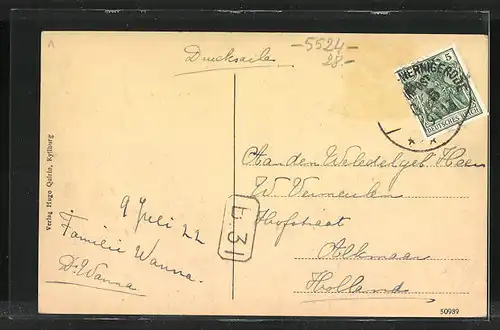 Drucksache
—5524—
28.—
5
WERNIGERODE
DEUTSCHES REICH
Aan den Weledelgeb. Heer
W Vermeulen
Hofstraat
Alkmaar
Holland
9 Juli 22
Familie Wanna.
Dr. Wanna
t. 31
Verlag Hugo Quirin, Kyllburg
50989